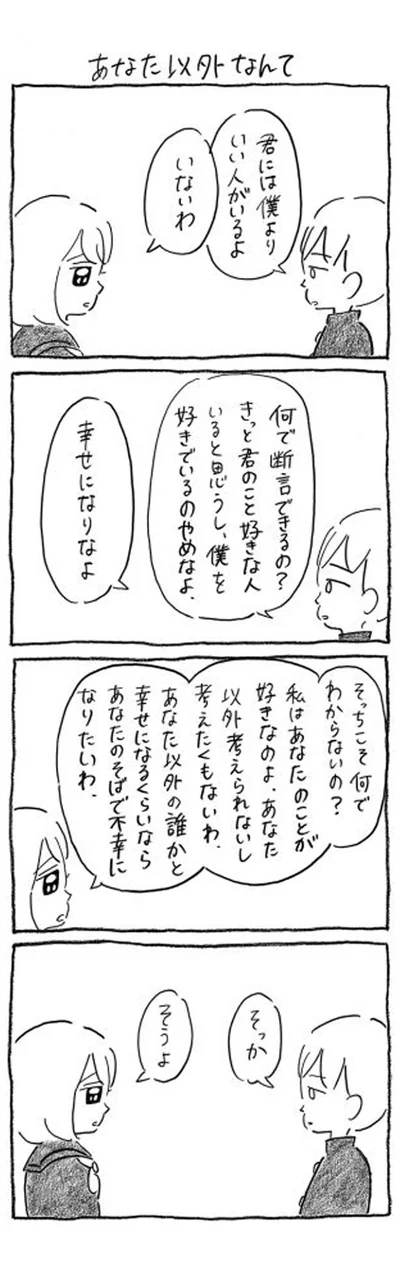 あなた以外なんて
君には僕より
いい人がいるよ
いないわ
何で断言できるの？
きっと君のこと好きな人
いると思うし、僕を
好きでいるのやめなよ．
幸せになりなよ
そっちこそ何で
わからないの？
私はあなたのことが
好きなのよ．あなた
以外考えられないし
考えたくもないわ．
あなた以外の誰かと
幸せになるくらいなら
あなたのそばで不幸に
なりたいわ．
そっか
そうよ